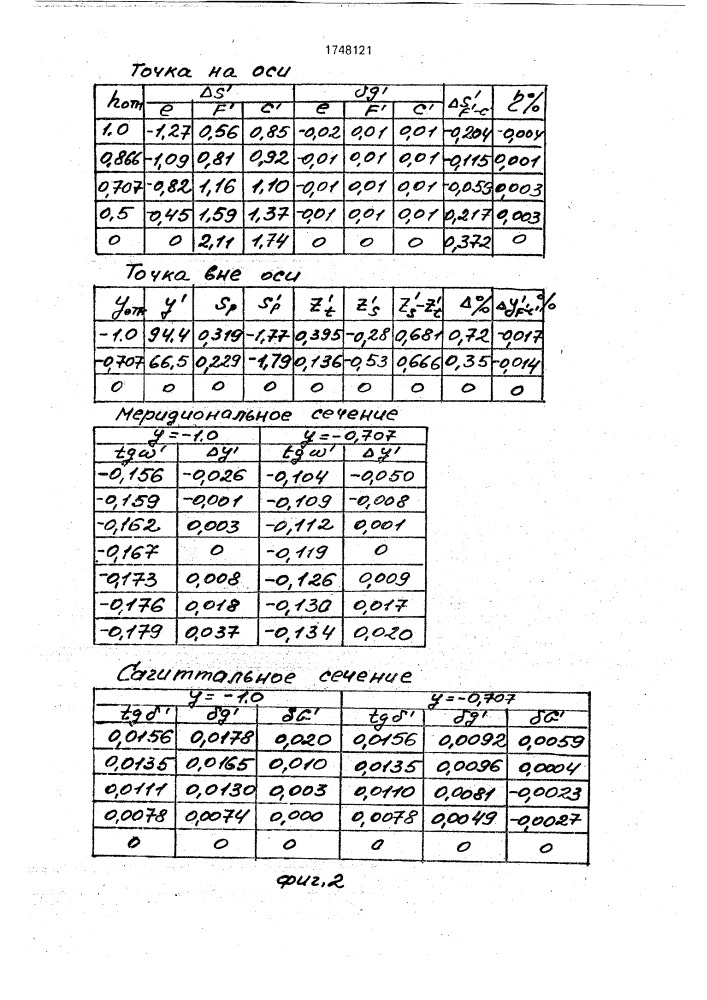 1748121
Точка на оси
hотн Δs' δg' Δs'F'-C' η%
e F' C' e F' C'
1.0 -1,27 0,56 0,85 -0,02 0,01 0,01 -0,204 -0,004
0,866 -1,09 0,81 0,92 -0,01 0,01 0,01 -0,115 0,001
0,707 -0,82 1,16 1,10 -0,01 0,01 0,01 -0,053 0,003
0,5 -0,45 1,59 1,37 -0,01 0,01 0,01 0,217 0,003
0 0 2,11 1,74 0 0 0 0,372 0
Точка вне оси
yотн y' Sp S'p Z't Z's Z's-Z't Δ% Δy'F'-C'%
-1.0 94.4 0,319 -1,77 0,395 -0,28 0,681 0,72 -0,017
-0,707 66,5 0,229 -1,79 0,136 -0,53 0,666 0,35 -0,014
0 0 0 0 0 0 0 0 0
Меридиональное сечение
y=-1.0 y=-0,707
tgω' Δy' tgω' Δy'
-0,156 -0,026 -0,104 -0,050
-0,159 -0,001 -0,109 -0,008
-0,162 0,003 -0,112 0,001
-0,167 0 -0,119 0
-0,173 0,008 -0,126 0,009
-0,176 0,018 -0,130 0,017
-0,179 0,037 -0,134 0,020
Сагиттальное сечение
y=-1.0 y=-0,707
tgδ' δg' δG' tgδ' δg' δG'
0,0156 0,0178 0,020 0,0156 0,0092 0,0059
0,0135 0,0165 0,010 0,0135 0,0096 0,0004
0,0111 0,0130 0,003 0,0110 0,0081 -0,0023
0,0078 0,0074 0,000 0,0078 0,0049 -0,0027
0 0 0 0 0 0
фиг,2